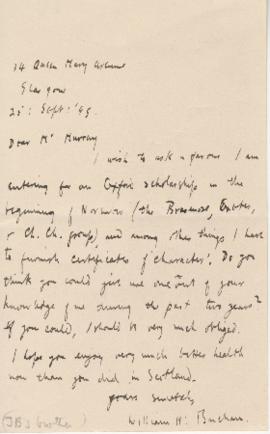 34 Queen Mary Avenue
Glasgow
25: Sept: '95.
Dear Mr Murray
I wish to ask a favour. I am
entering for an Oxford scholarship in the
beginning of November (the Brasenose, Exeter,
& Ch. Ch. group) and among other things I have
to furnish certificates of 'character'. Do you
think you could give me one out of your
knowledge of me during the past two years?
If you could, I should be very much obliged.
I hope you enjoy very much better health
now than you did in Scotland.
yours sincerely
William H: Buchan.
(JB's brother)